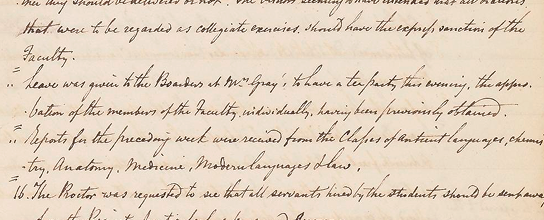 they should be delivered or not. The
that were to be regarded as collegiate exercises, should have the express sanction of the
Faculty.
" Leave was given to the Boarders at Mrs Gray's to have a tea party this evening, the appro-
-bation of the members of the Faculty, individually, having been previously obtained.
" Reports for the preceding week were received from the Classes of Antient languages, chemis-
-try, Anatomy, Medicine, Modern languages & Law.
16. The Proctor was requested to see that all servants hired by the students should be sent away